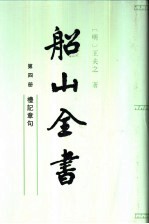 [明] 王夫之 著
船山全書
第四册
禮記章句